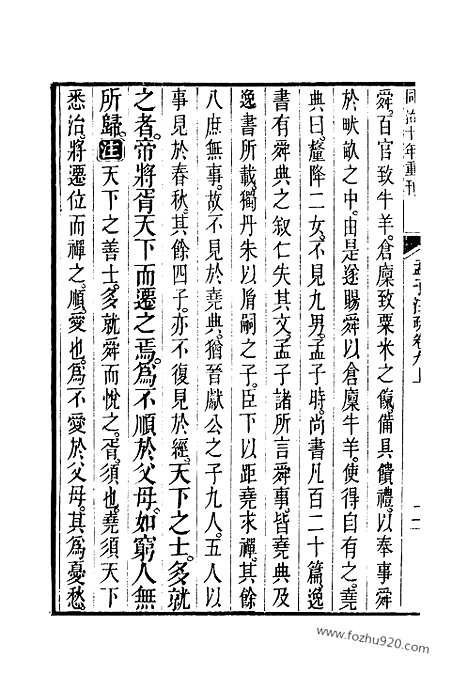 同治十年重刊
孟子注疏卷九上
二
舜。百官致牛羊。倉廩致粟米之餼。備具饋禮。以奉事舜
於畎畝之中。由是遂賜舜以倉廩牛羊。使得自有之。堯
典曰。釐降二女。不見九男。孟子時。尚書凡百二十篇。逸
書有舜典之敘。亡失其文。孟子諸所言舜事。皆堯典及
逸書所載。獨丹朱以胤嗣之子。臣下以距堯求禪。其餘
八庶無事。故不見於堯典。猶晉獻公之子九人。五人以
事見於春秋。其餘四子。亦不復見於經。天下之士。多就
之者。帝將胥天下而遷之焉。為不順於父母。如窮人無
所歸。注天下之善士。多就舜而悅之。胥。須也。堯須天下
悉治。將遷位而禪之。順愛也。為不愛於父母。其為憂愁
www.fozhu920.com